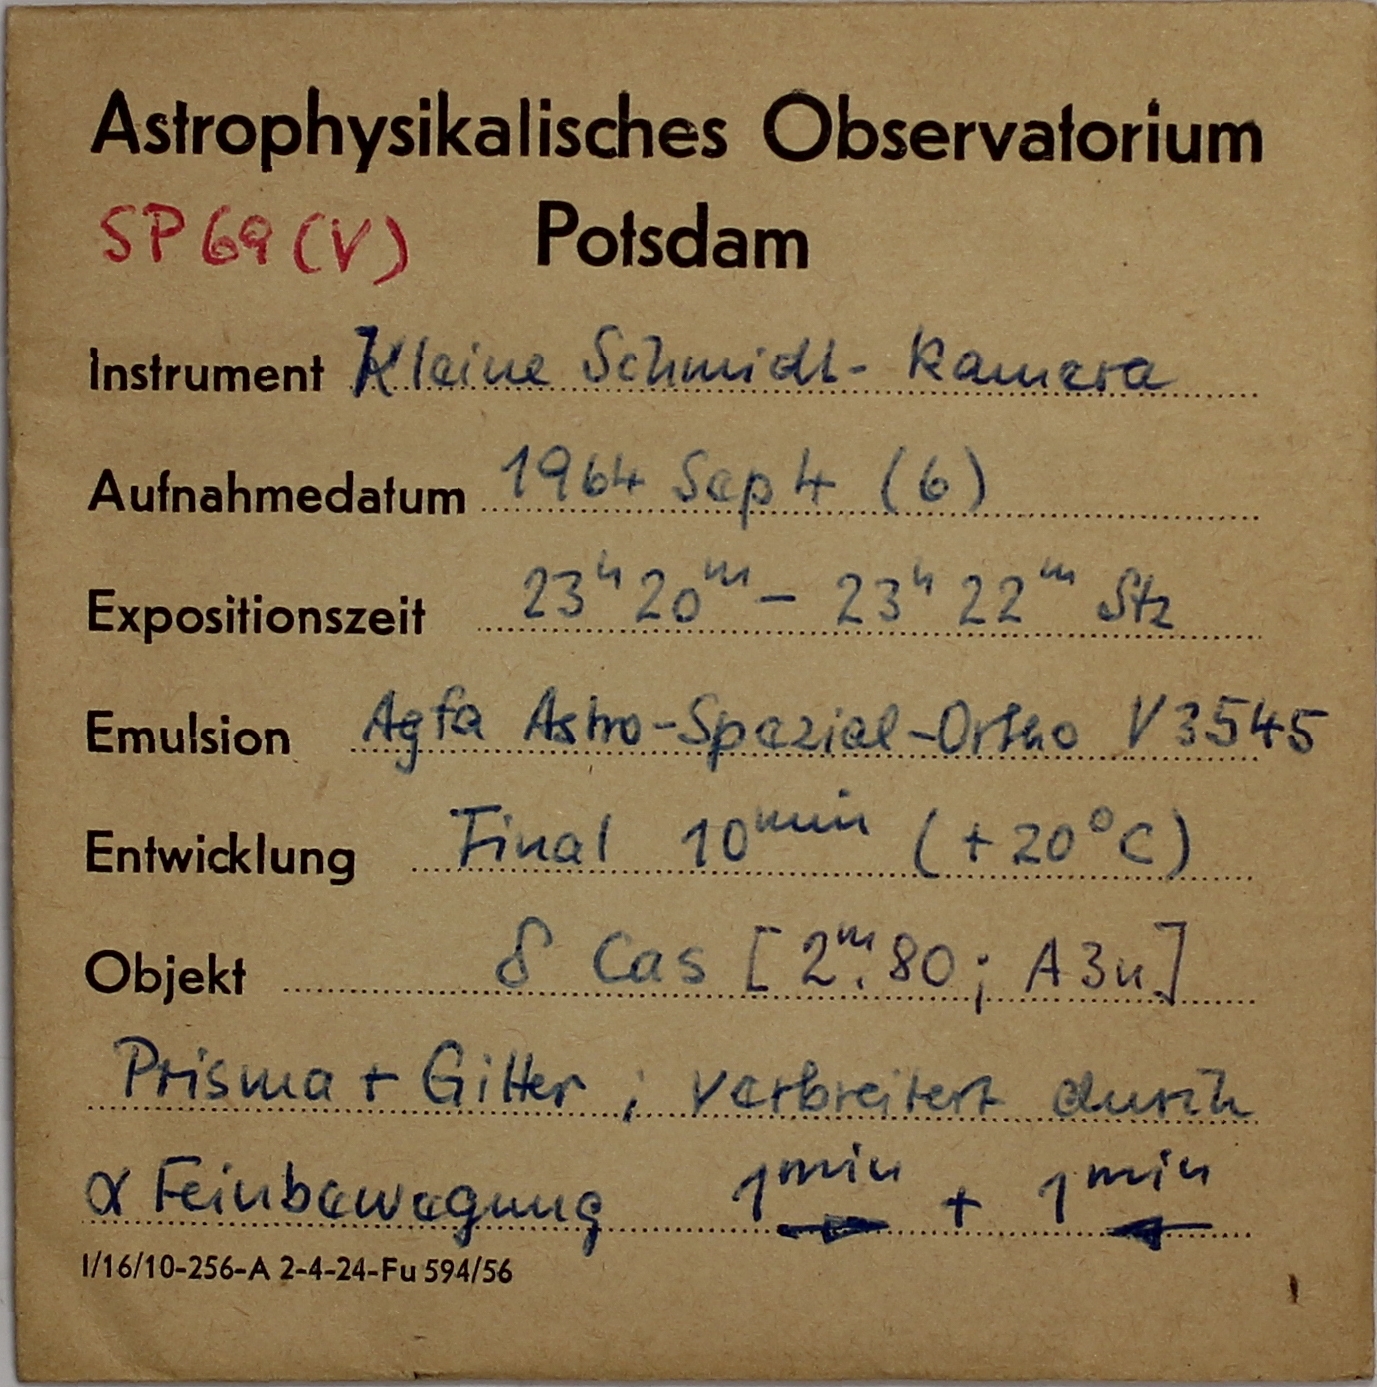 Astrophysikalisches Observatorium
SP 69 (V) Potsdam
Instrument Kleine Schmidt-Kamera
Aufnahmedatum 1964 Sep 4 (6)
Expositionszeit 23ʰ 20ᵐ – 23ʰ 22ᵐ Stz
Emulsion Agfa Astro-Spezial-Ortho V 3545
Entwicklung Final 10ᵐⁱⁿ (+20°C)
Objekt δ Cas [2ᵐ.80; A3n]
Prisma + Gitter; verbreitert durch
α Feinbewegung 1ᵐⁱⁿ → + 1ᵐⁱⁿ ←
I/16/10-256-A 2-4-24-Fu 594/56